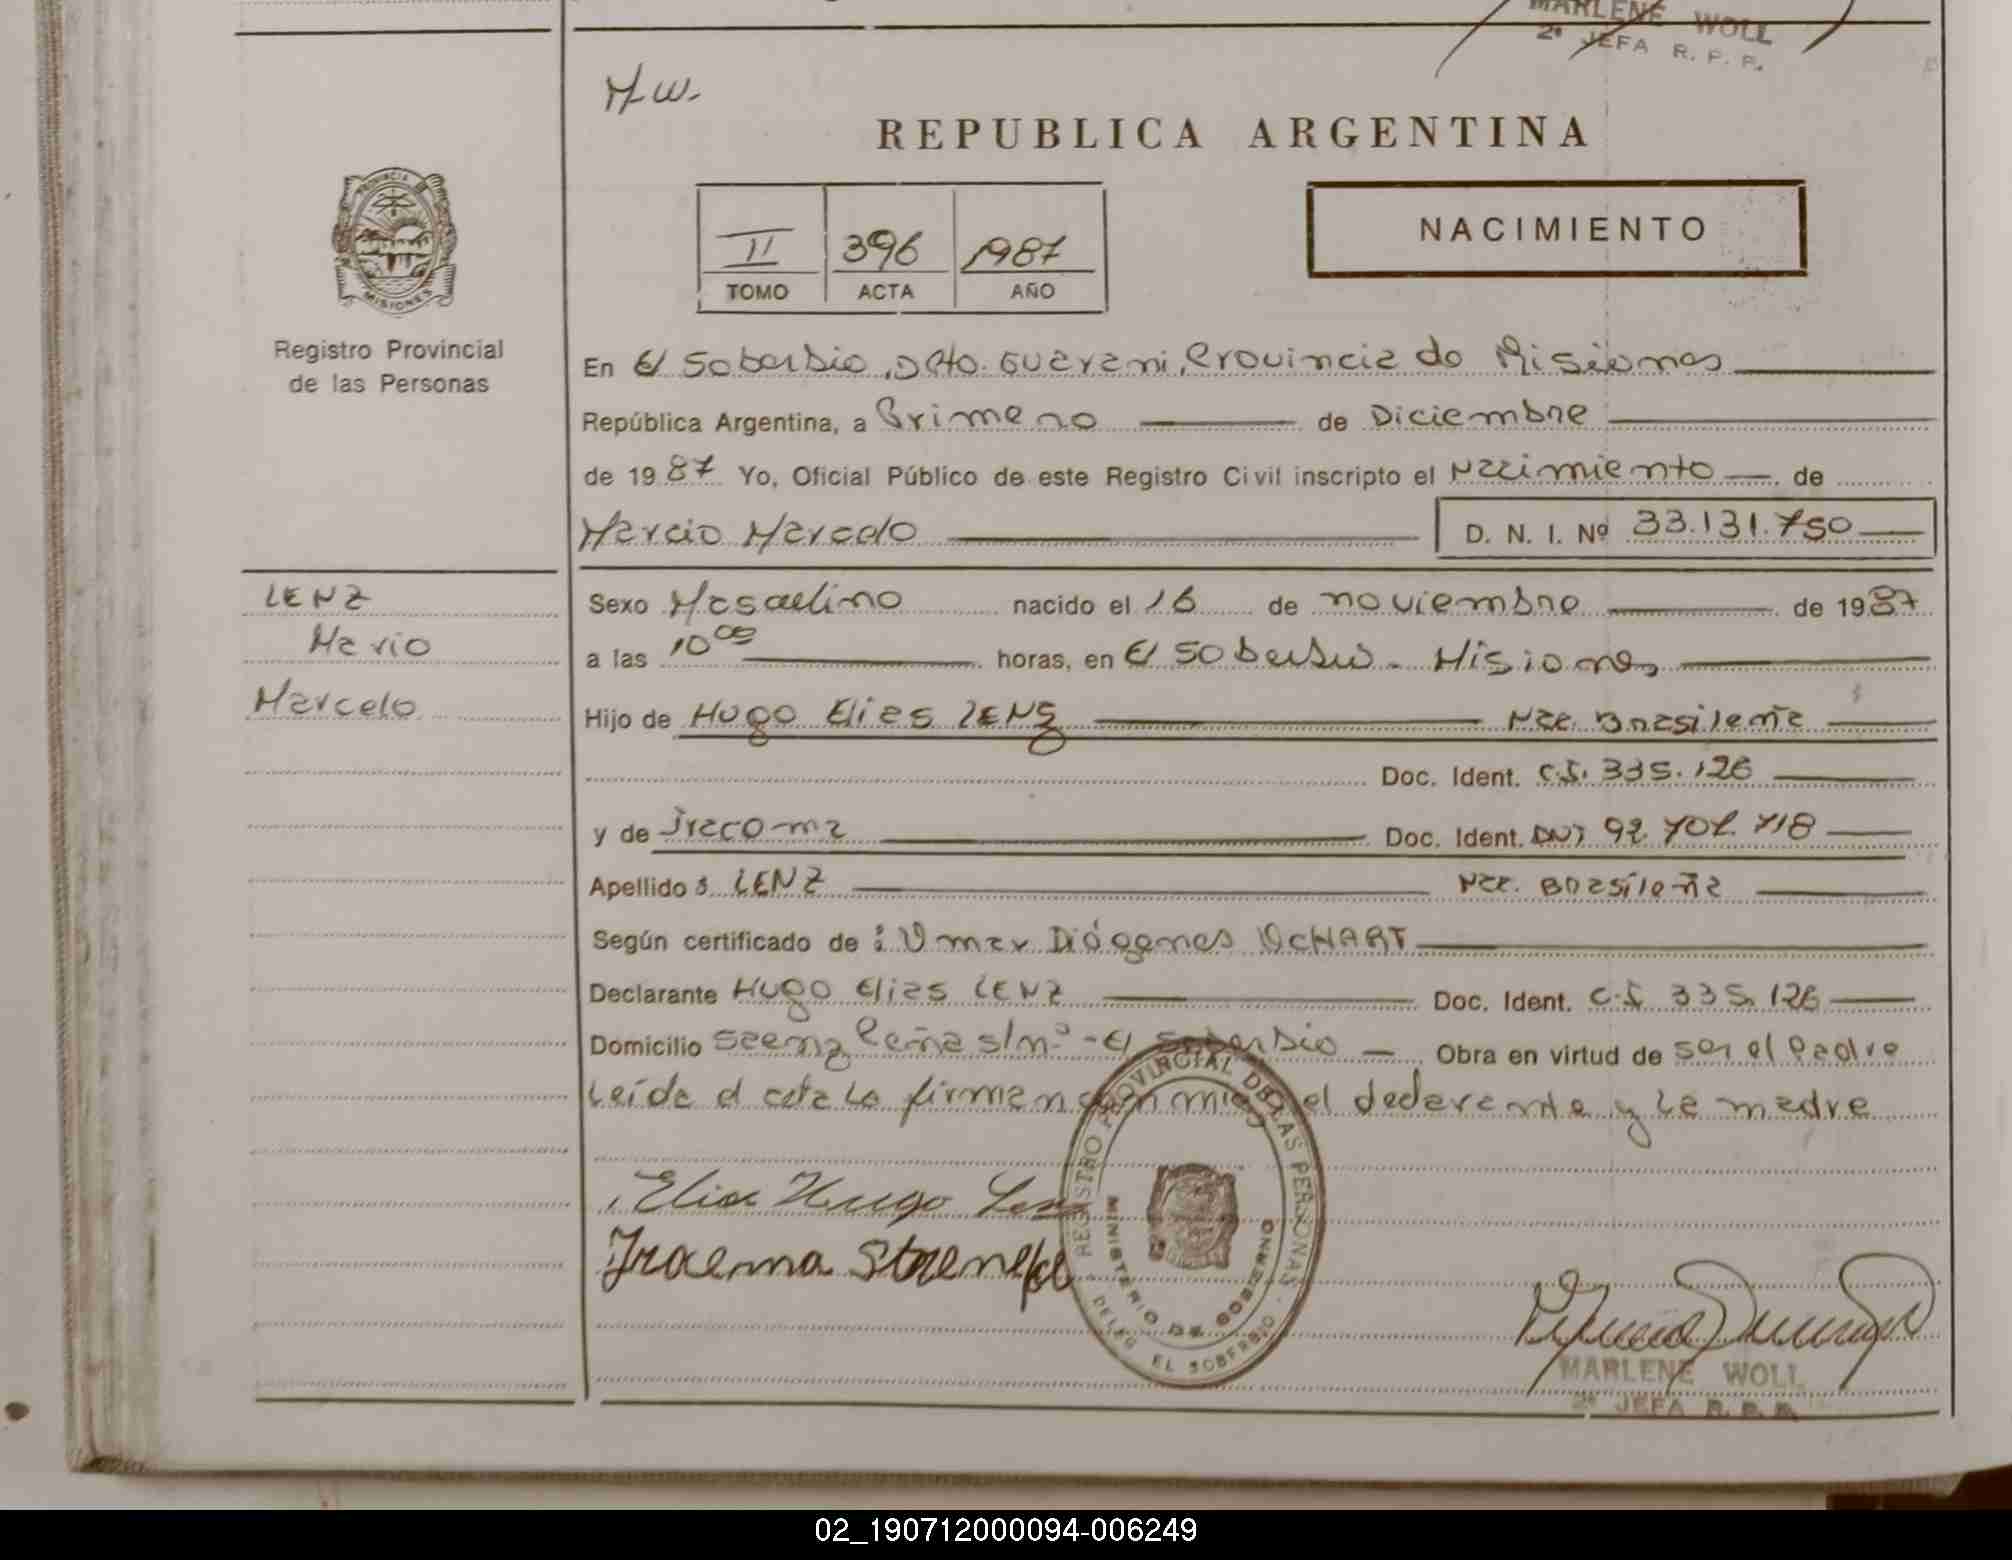 MARLENE WOLL
2ª JEFA R. P. P.
M.W.
REPUBLICA ARGENTINA
II 396 1987
TOMO ACTA AÑO
NACIMIENTO
PROVINCIA
MISIONES
Registro Provincial
de las Personas
En El Soberbio, Dpto. Guarani, Provincia de Misiones
República Argentina, a Primero de Diciembre
de 1987 Yo, Oficial Público de este Registro Civil inscripto el Nacimiento de
Marcio Marcelo D. N. I. Nº 33.131.750
LENZ
Mario
Marcelo
Sexo Masculino nacido el 16 de noviembre de 1987
a las 10 00 horas, en El Soberbio - Misiones
Hijo de Hugo Elias LENZ Nac. Brasileña
Doc. Ident. C.I. 335.126
y de Iracema Doc. Ident. DNI 92.707.718
Apellido s LENZ Nac. Brasileña
Según certificado de : Omar Diógenes OCHART
Declarante Hugo Elias LENZ Doc. Ident. C.I. 335.126
Domicilio Saenz Peña s/nº - El Soberbio Obra en virtud de ser el Padre
Leída el acta la firman con migo el declarante y la madre
Elias Hugo Lenz
Iracema
REGISTRO PROVINCIAL DE LAS PERSONAS
MINISTERIO DE GOBIERNO
DELEG EL SOBERBIO
MARLENE WOLL
2ª JEFA R. P. P.
02_190712000094-006249